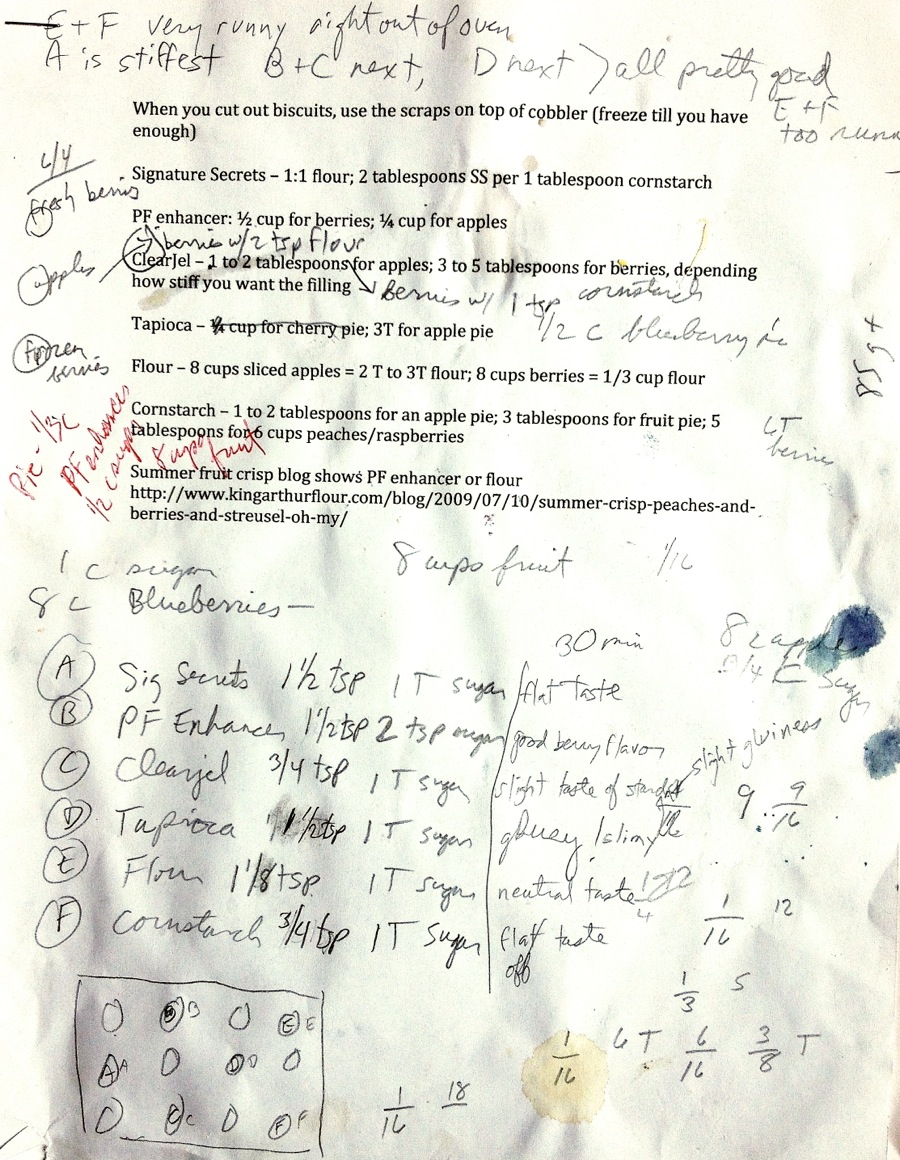 E + F very runny right out of oven
A is stiffest B + C next, D next > all pretty good
E + F
too runn
When you cut out biscuits, use the scraps on top of cobbler (freeze till you have
enough)
fresh berries
Signature Secrets – 1:1 flour; 2 tablespoons SS per 1 tablespoon cornstarch
PF enhancer: ½ cup for berries; ¼ cup for apples
berries w/ 2 tsp flour
apples
ClearJel – 1 to 2 tablespoons for apples; 3 to 5 tablespoons for berries, depending
how stiff you want the filling
Berries w/ 1 tsp cornstarch
Tapioca – ¼ cup for cherry pie; 3T for apple pie
1/2 c blueberry
frozen
berries
Flour – 8 cups sliced apples = 2 T to 3T flour; 8 cups berries = 1/3 cup flour
Cornstarch – 1 to 2 tablespoons for an apple pie; 3 tablespoons for fruit pie; 5
tablespoons for 6 cups peaches/raspberries
berries
Pie - 1/3 C
PF enhancer
1/2 c sugar
8 cups fruit
Summer fruit crisp blog shows PF enhancer or flour
http://www.kingarthurflour.com/blog/2009/07/10/summer-crisp-peaches-and-
berries-and-streusel-oh-my/
1 c sugar
8 cups fruit 1/16
8 c Blueberries —
30 min
8 c apple
3/4 C sugar
A Sig Secrets 1 1/2 tsp 1 T sugar flat taste
B PF Enhancer 1 1/2 tsp 2 tsp sugar good berry flavor
slight glueiness
C Clearjel 3/4 tsp 1 T sugar slight taste of starch
9 9/16
D Tapioca 1 1/2 tsp 1 T sugar gluey/slimy
E Flour 1 1/8 tsp 1 T sugar neutral taste
1/16 12
F Cornstarch 3/4 tsp 1 T sugar flat taste
off
1/3 5
B B E E
A A D D
C C F F
1/16 6 T 6/16 3/8 T
1/16 18